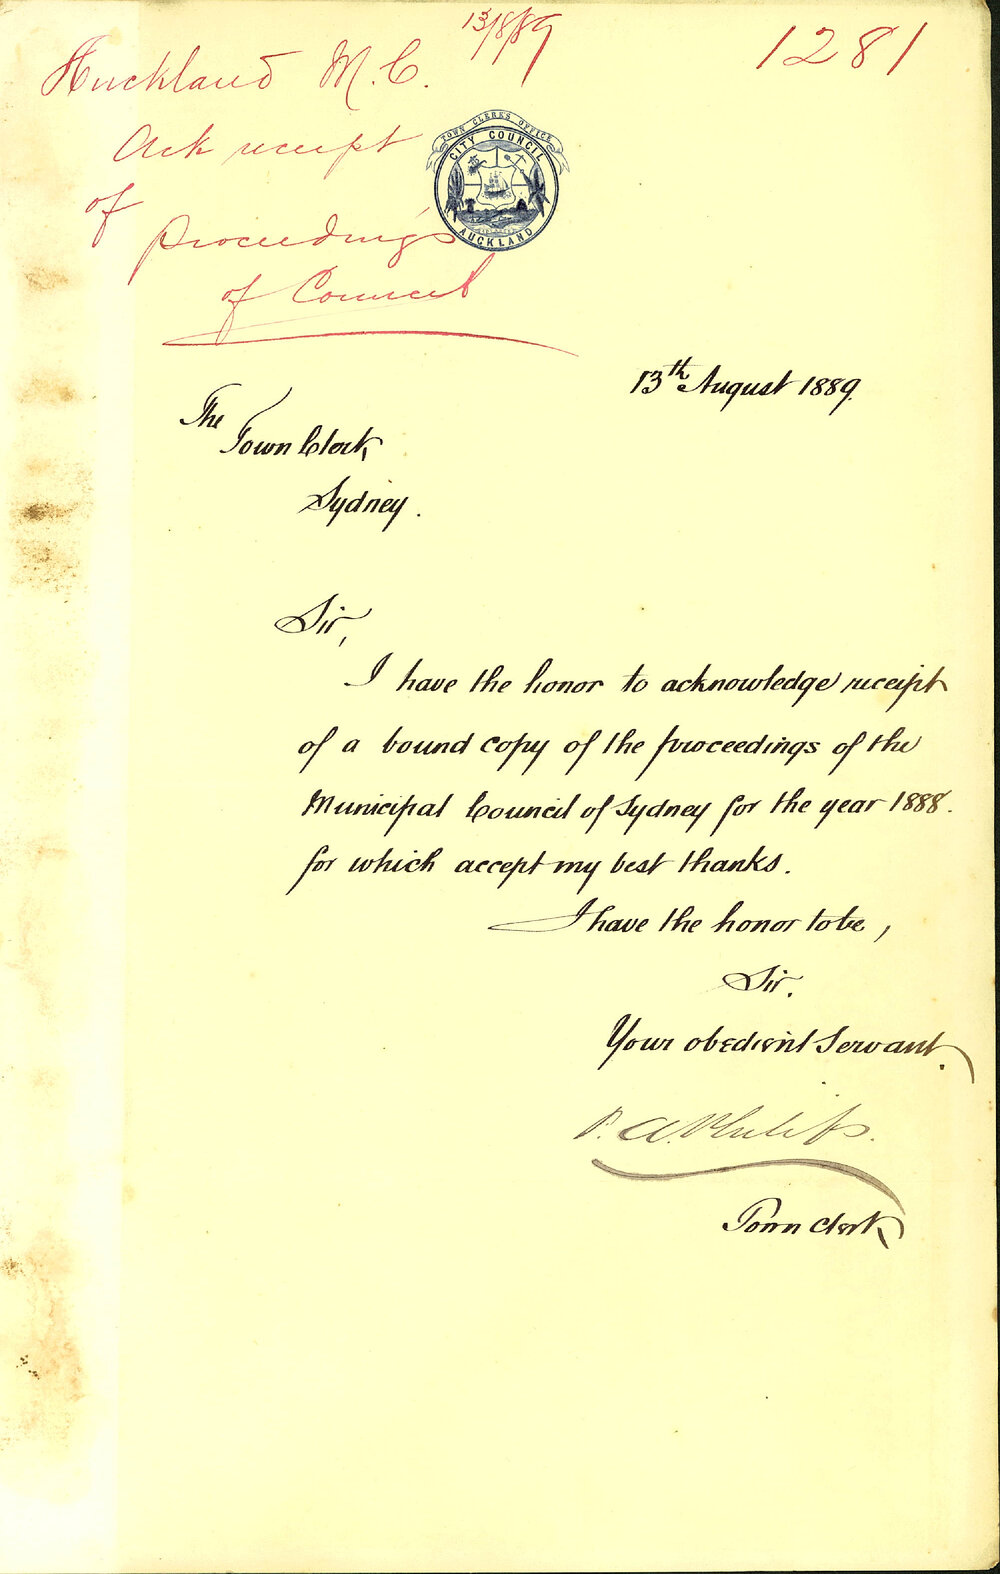 13/8/89
1281
Auckland M.C.
Ack receipt
of
proceedings
of Council
TOWN CLERK'S OFFICE
CITY COUNCIL
AUCKLAND
13th August 1889.
The
Town Clerk,
Sydney.
Sir,
I have the honor to acknowledge receipt
of a bound copy of the proceedings of the
Municipal Council of Sydney for the year 1888.
for which accept my best thanks.
I have the honor to be,
Sir.
Your obedient Servant.
P. A. Philips.
Town Clerk